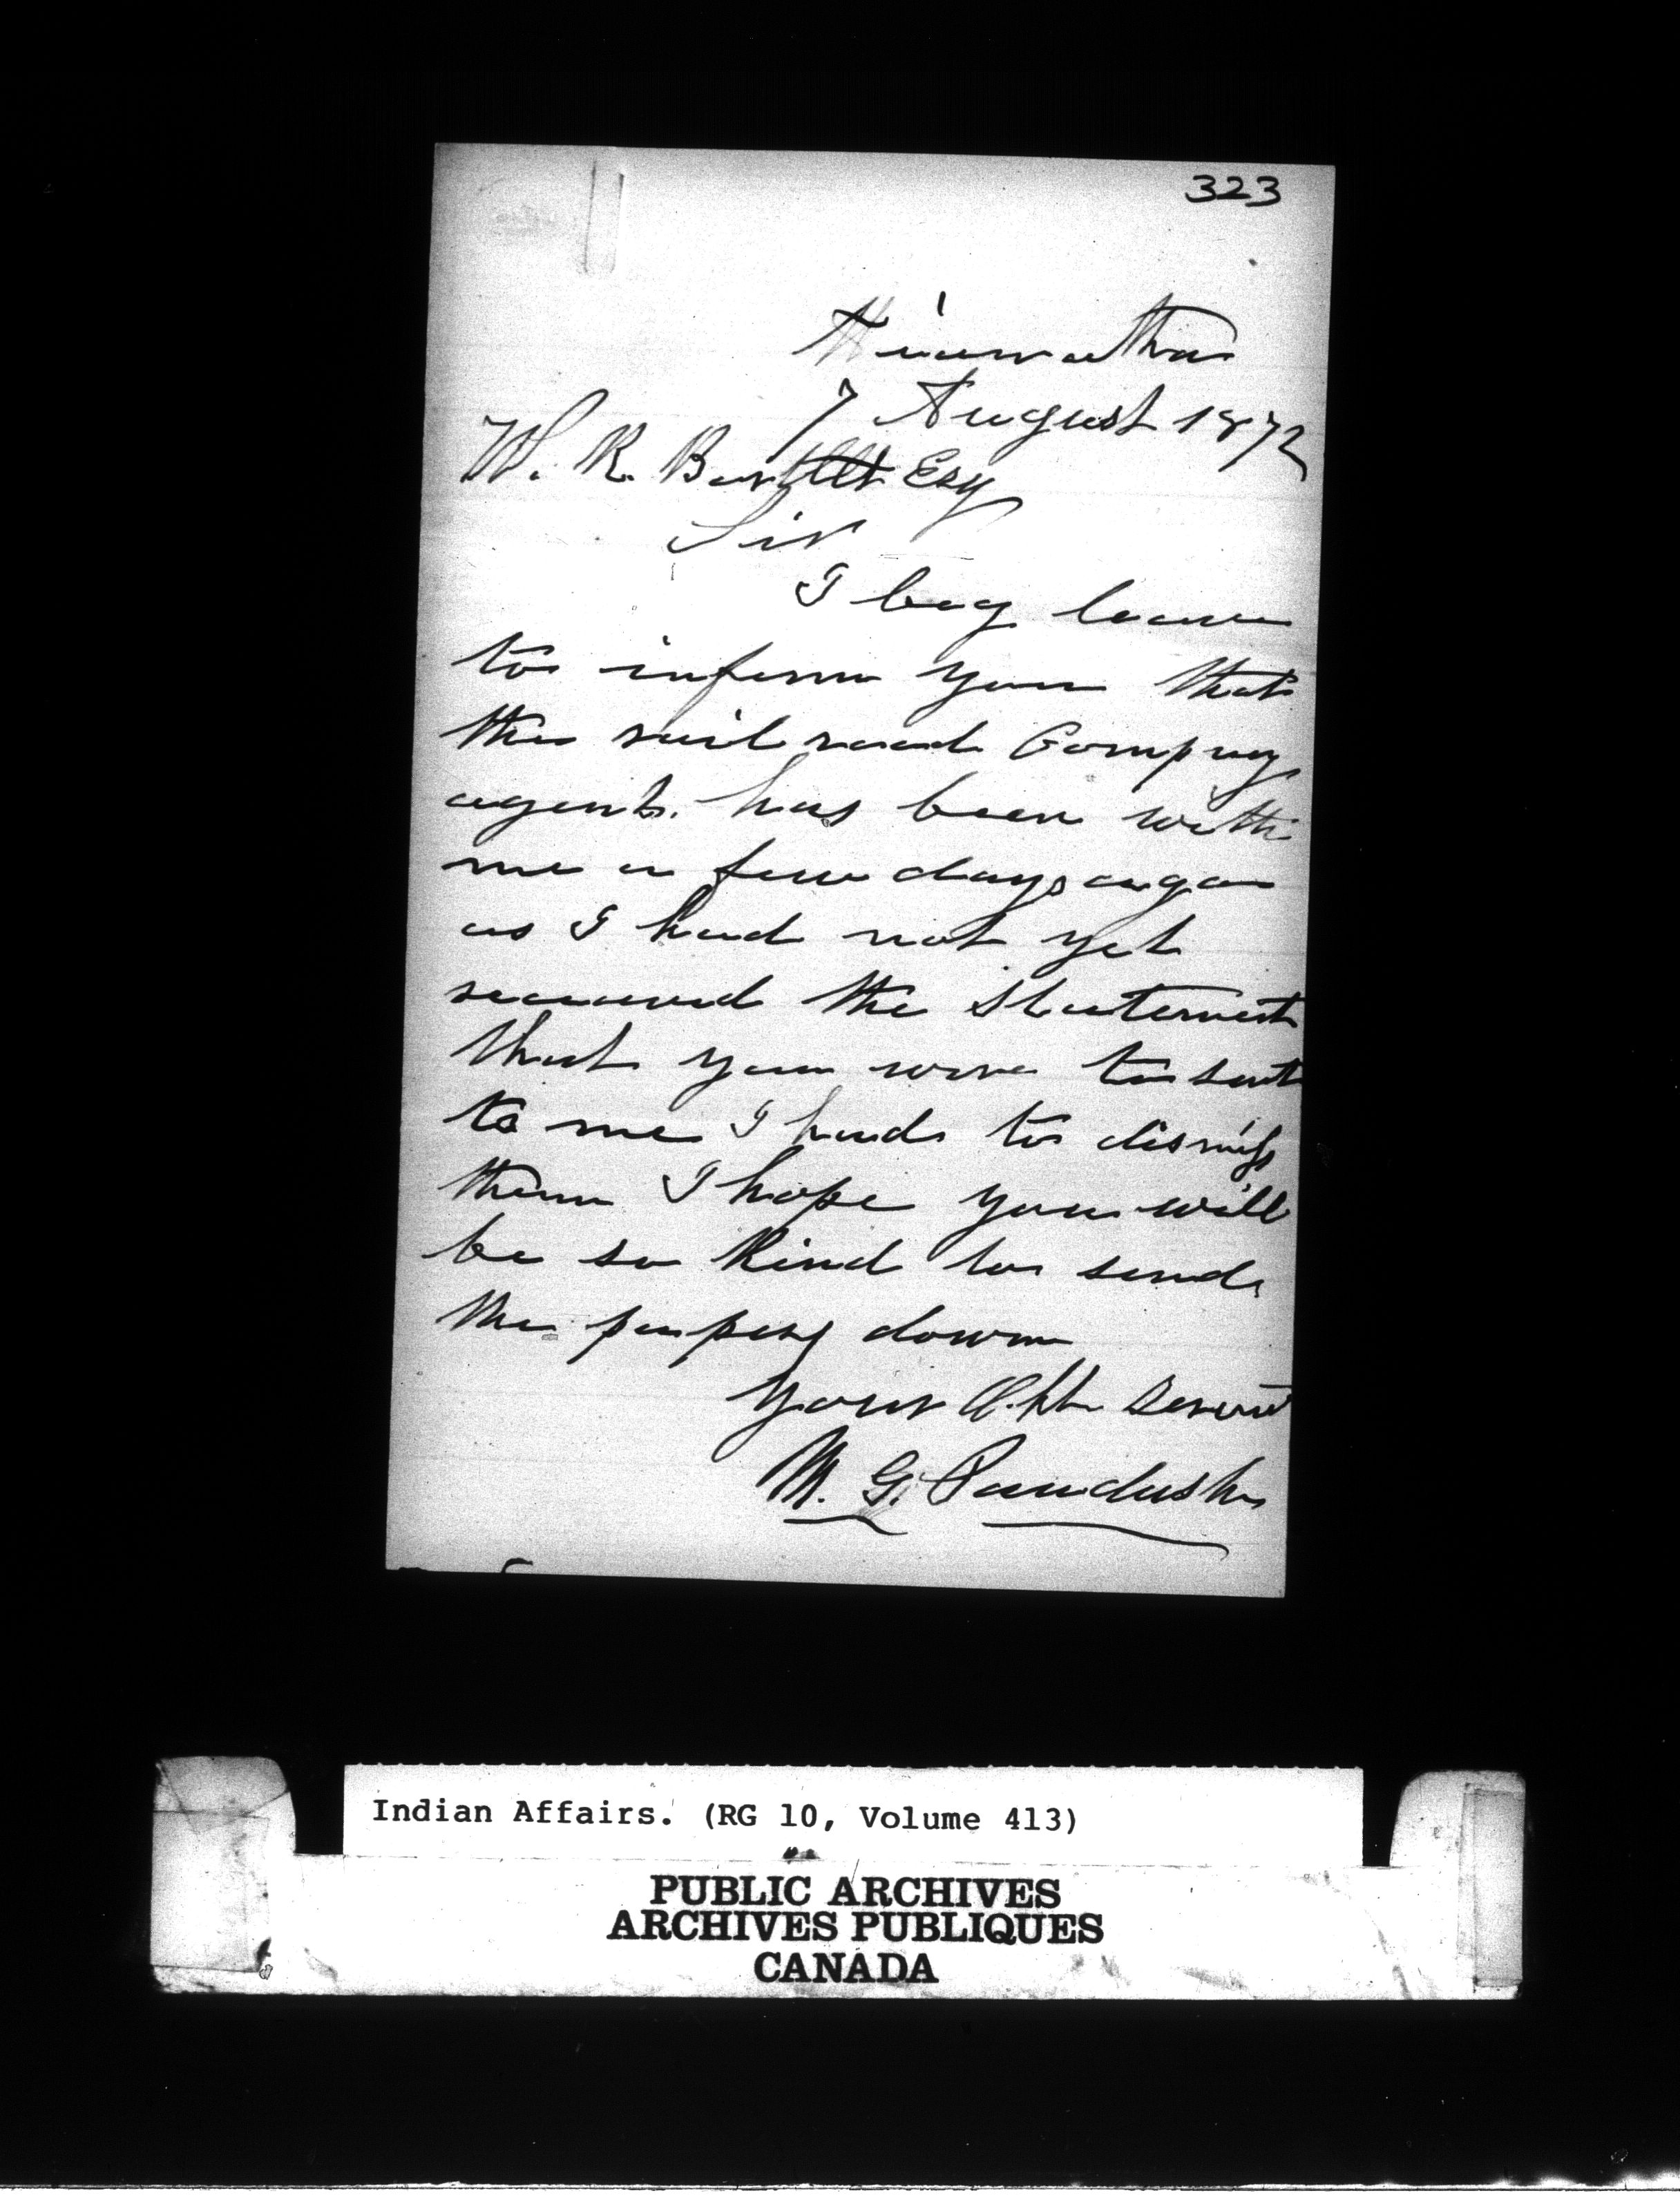 323
Hiawatha
7 August 1872
W. R. Bartlett Esq
Sir
I beg leave
to inform you that
the rail road Compny
agent. has been with
me a few days ago
as I had not yet
received the Statement
that you were to sent
to me I had to dismiss
them I hope you will
be so Kind to send
the papers down
your Obt Servt
M. G. Paudash
Indian Affairs. (RG 10, Volume 413)
PUBLIC ARCHIVES
ARCHIVES PUBLIQUES
CANADA